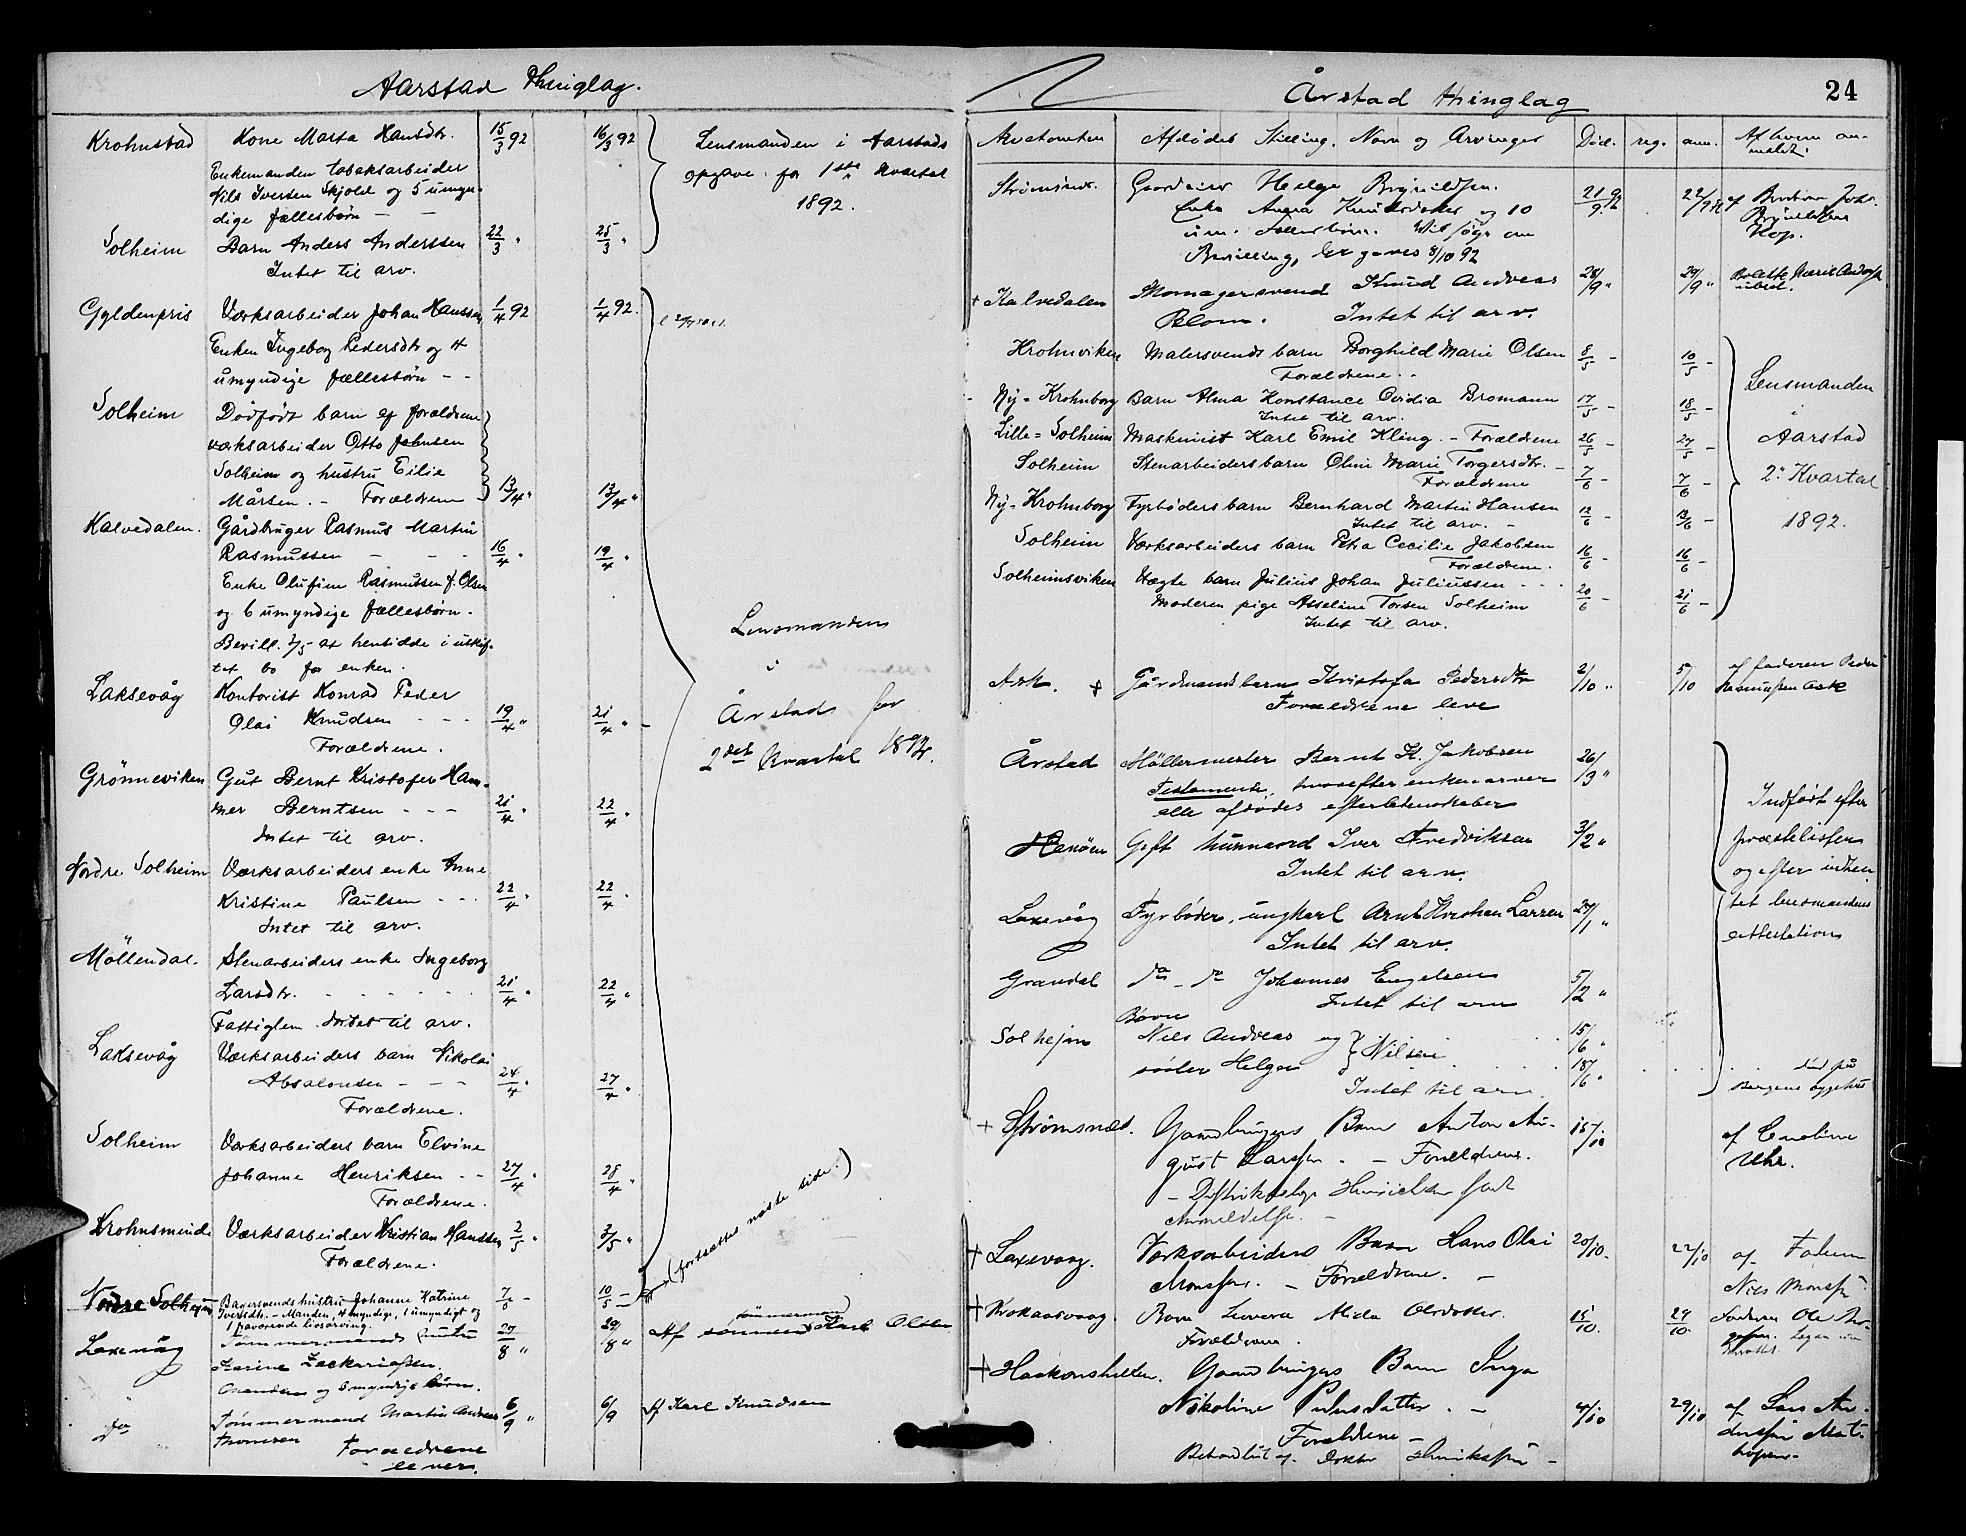 Aarstad Thinglag.
Krohnstad Kone Marta Hansdtr. 15/3 92 16/3 92
Enkemanden tobaksarbeider
Nils Iversen Skjold og 5 umyn-
dige fællesbørn — —
Solheim Barn Anders Anderssen 22/3 " 25/3 "
Intet til arv.
Lensmanden i Aarstads
opgave for 1ste Kvartal
1892.
Gyldenpris Værksarbeider Johan Hanssen 1/4 92 1/4 92.
Enken Ingeborg Pedersdtr og 4
umyndige fællesbørn — -
Solheim Dødfødt barn af forældrene
værksarbeider Otto Johnsen
Solheim og hustru Eilie
Mårsen. - Forældrene 13/4 " 13/4 "
Kalvedalen. Gårdbruger Rasmus Martin
Rasmussen - - - 16/4 " 19/4 "
Enke Olufine Rasmussen f. Olsen
og 6 umyndige fællesbørn.
Bevill. 3/5 at hensidde i uskif-
tet bo for enken.
Laksevåg Kontorist Konrad Peder
Olai Knudsen - - - 19/4 " 21/4 "
Forældrene.
Grønneviken Gut Bernt Kristofer Ham-
mer Berntsen - - - 21/4 " 22/4 "
Intet til arv.
Nordre Solheim Værksarbeiders enke Anne
Kristine Paulsen - - - 22/4 " 22/4 "
Intet til arv.
Möllendal. Stenarbeiders enke Ingeborg
Larsdtr. - - - - - 21/4 " 22/4 "
Fattiglem. Intet til arv.
Laksevåg Værksarbeiders barn Nikolai
Absalonsen - - - 24/4 " 27/4 "
Forældrene.
Solheim Værksarbeiders barn Elvine
Johanne Henriksen - - 27/4 " 28/4 "
Forældrene.
Krohnsminde Værksarbeider Kristian Hanssen 2/5 " 3/5 "
Forældrene.
Lensmanden
i
Årstad for
2det Kvartal 1892.
(fortsættes næste side.)
Nordre Solhejm Bagersvends hustru Johanne Katrine 7/5 - 10/5 -
Iversdtr. - Manden, 4 myndige, 1 umyndigt og
1 fraværende livsarving.
Laxevåg Tømmermands hustru 27/8 " 29/8 " Af tømmermand Karl Olsen
Karine Zachariassen.
Manden og 3 myndige børn.
" do Tømmermand Martin Andreas 6/9 " 6/9 Af Karl Knudsen
Thomsen Forældrene
lever.
Årstad thinglag 24
Afdødes Stilling, Navn og Arvinger Død. reg. anm. Af hvem an-
meldt.
Strömsnes. Gaardeier Helge Brynildsen. 21/9 92 22/9 92
Enke Anna Knutsdatter og 10
um. Fællesbørn. Vil søge om
Bevilling, ble gaves 8/10 92
+ Kalvedalen Skomagersvend Knud Andreas 28/9 " 29/9 "
Blom. Intet til arv.
Krohnviken Malersvends barn Borghild Marie Olsen 8/5 - 10/5 -
Forældrene. -
Ny-Krohnborg Barn Alma Konstance Ovidia Bromann 17/5 - 18/5 -
Intet til arv.
Lille-Solheim Maskinist Karl Emil Kling. - Forældrene 26/5 - 27/5 -
Solheim Stenarbeiders barn Oline Marie Torgersdtr. - 7/6 - 7/6 -
Forældrene
Ny-Krohnborg Fyrbøders barn Bernhard Martin Hansen 12/6 - 13/6 -
Intet til arv. -
Solheim Værksarbeiders barn Petra Cecilie Jakobsen 16/6 - 16/6 -
Forældrene.
Solheimsviken Uægte barn Julius Johan Juliussen - - - 20/6 - 21/6 -
Moderen pige Asseline Torsen Solheim
Intet til arv.
Lensmanden
i
Aarstad
2. Kvartal
1892.
Ask. + Gårdmandsbarn Kristofa Pedersdtr 2/10 " 5/10 af faderen Peder
Rasmussen Ask
Forældrene leve
Årstad Möllermester Bernt K. Jakobsen 26/3 "
Testamente, hvorefter enken arver
alle afdødes efterladenskaber
Hanöen Gift husmand Iver Fredriksen 3/2 "
Intet til arv.
Laxevåg Fyrbøder, ungkarl Arnt Kristian Larsen 27/1 "
Intet til arv.
Gravdal do - do Johannes Engelsen 5/2 "
Intet til arv
Børn
Solhejm Nils Andreas og } Nilsen 15/6 "
søster Helga 18/6 "
Intet til arv.
Indført efter
præstelisten
og efter indhen-
tet lensmandens
attestation
død på
Bergens sygehus
+ Strømsnæs. Gaardbrugers Barn Anton Au- 15/10 af Emeline
gust Larssen. - Forældrene. Uhr.
+ Laxevaag. Værksarbeiders Barn Hans Olai 20/10. 22/10 af Faderen
Monssen. - Forældrene. - Nils Monssen
+ Krokaasvaag. Barn 15/10. 27/10
Forældrene.
+ Haakonshellen. Gaardbrugers Barn Inga
Nikoline Pedersdatter. - 4/10 29/10 af Lars An-
dersen
Forældrene -
Behandlet af Doktor Henriksen -